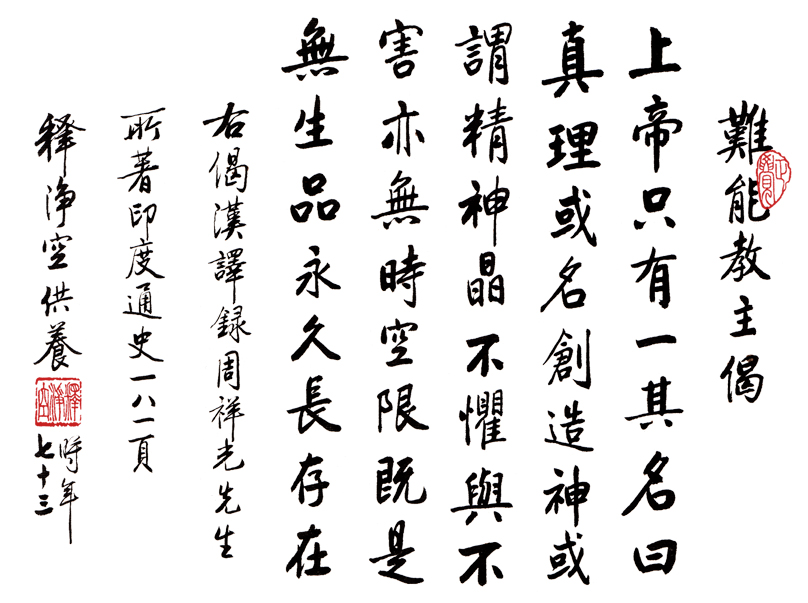 難能教主偈
上帝只有一其名曰
真理或名創造神或
謂精神晶不懼與不
害亦無時空限既是
無生品永久長存在
右偈漢譯録周祥光先生
所著印度通史一八一頁
釋淨空供養
時年
七十三